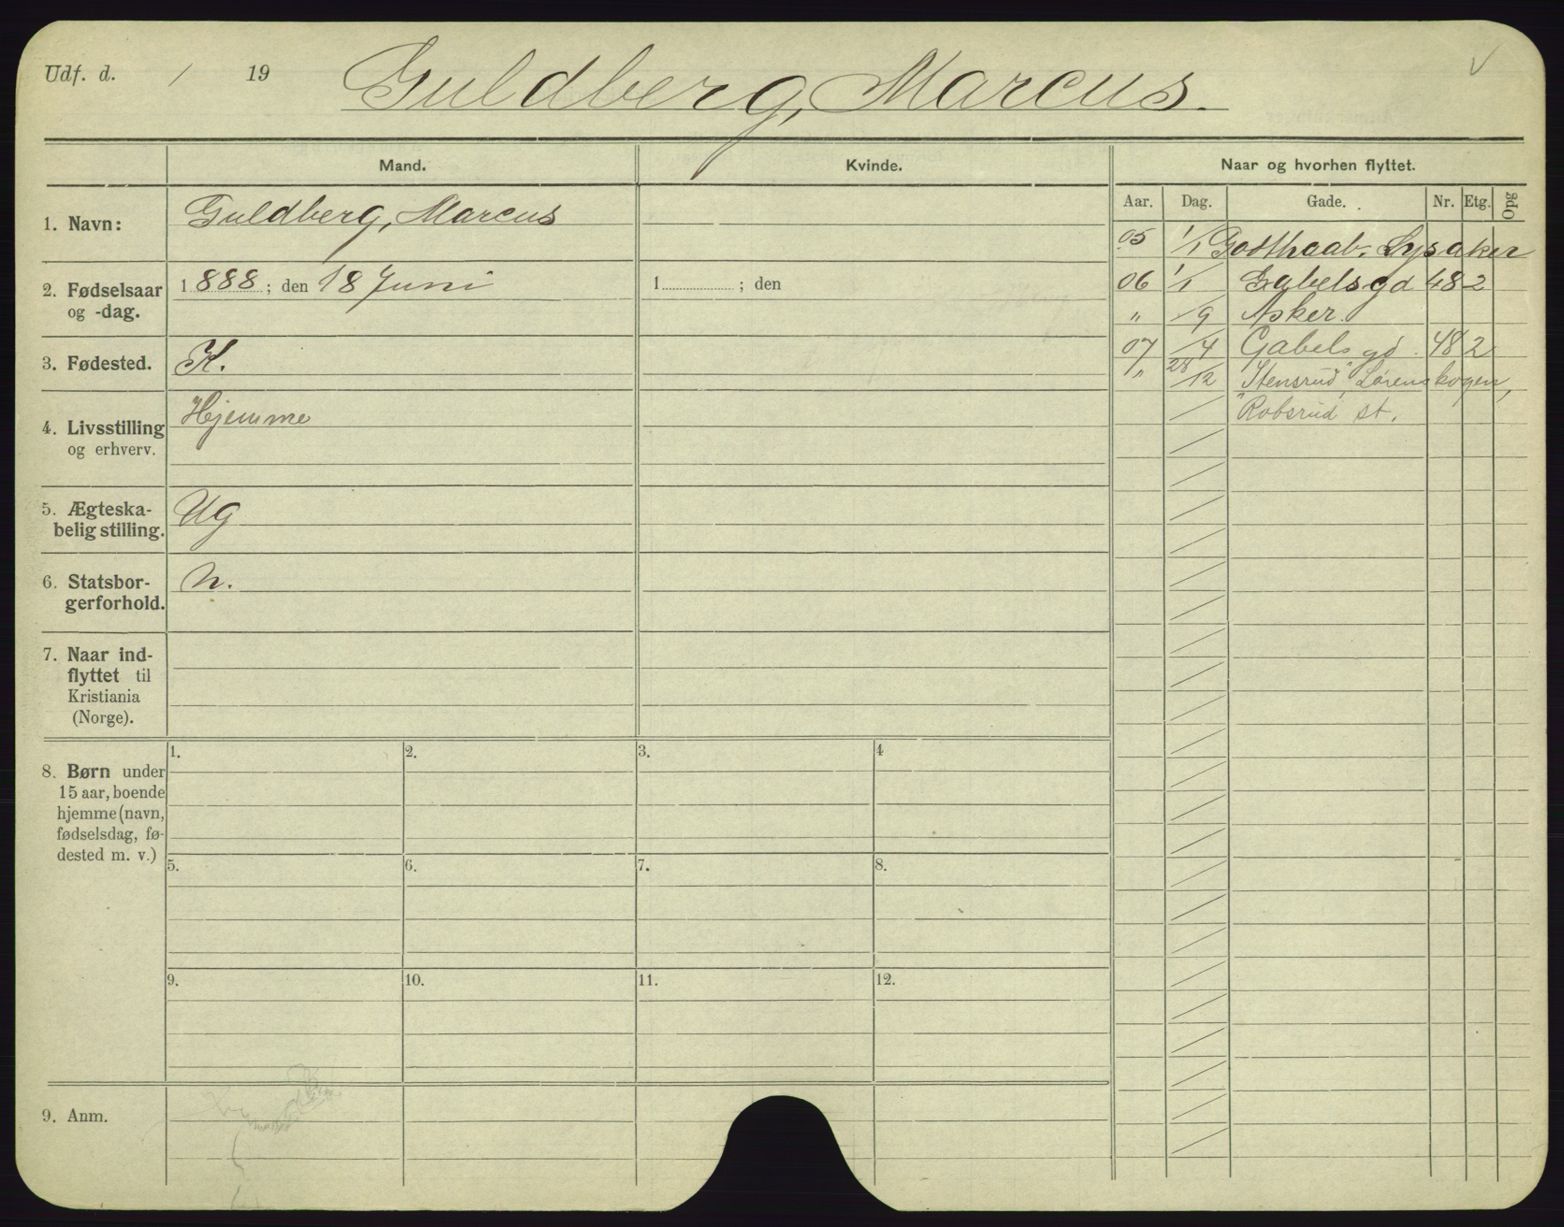 Udf. d. / 19 Guldberg, Marcus.
Mand. Kvinde. Naar og hvorhen flyttet.
Aar. Dag. Gade. Nr. Etg. Opg
1. Navn: Guldberg, Marcus
2. Fødselsaar og -dag. 1888; den 18 Juni 1 ; den
3. Fødested. K.
4. Livsstilling og erhverv. Hjemme
5. Ægteska-
belig stilling. Ug
6. Statsbor-
gerforhold. n.
7. Naar ind-
flyttet til
Kristiania
(Norge).
8. Børn under
15 aar, boende
hjemme (navn,
fødselsdag, fø-
dested m. v.)
1. 2. 3. 4
5. 6. 7. 8.
9. 10. 11. 12.
9. Anm.
05 1/1 Godthaab. Lysaker
06 1/1 Gabelsgd 48 2
" /9 Asker.
07 /4 Gabelsgd. 48 2
" 28/12 "Stensrud", Lørenskogen,
"Robsrud st.